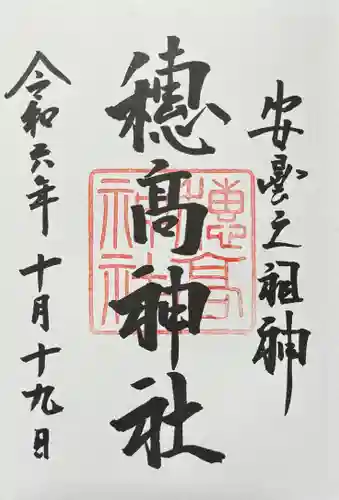 安曇之祖神
穂高神社
穂高神社
令和六年十月十九日